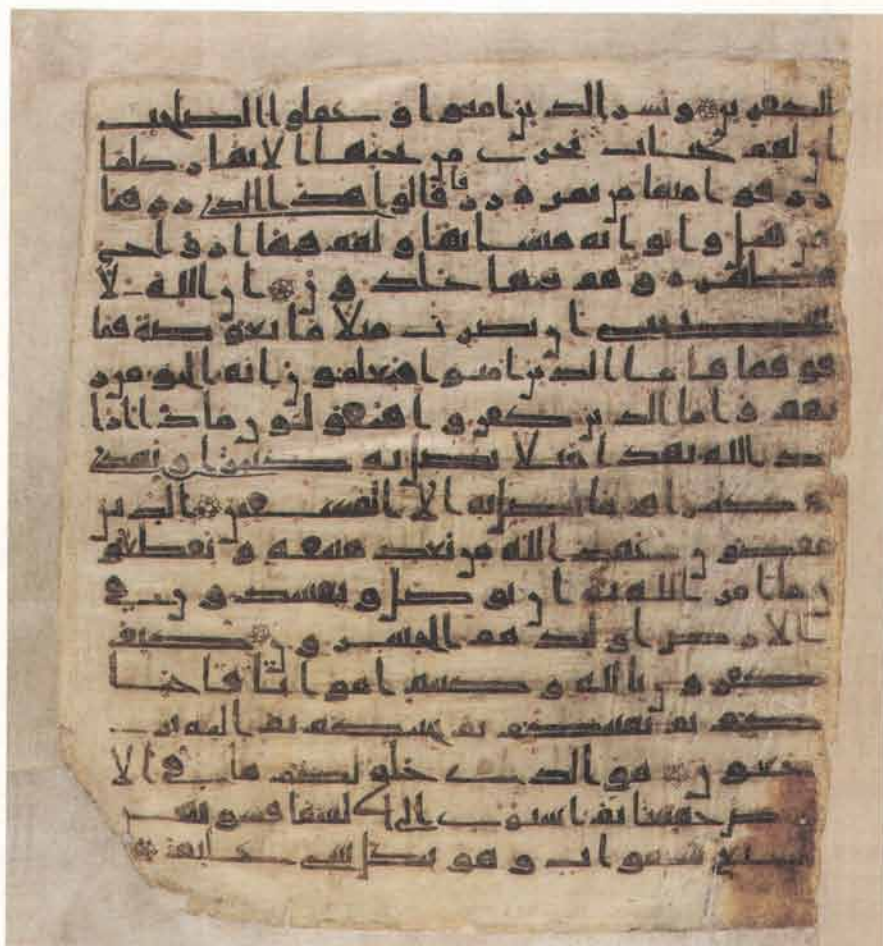 للكفرين وبشر الذين امنوا و عملوا الصلحت
ان لهم جنات تجري من تحتها الانهار كلما
رزقوا منها من ثمرة رزقا قالوا هذا الذي رزقنا
من قبل واتوا به متشابها ولهم فيها ازواج
مطهرة وهم فيها خلدون ان الله لا
يستحيي ان يضرب مثلا ما بعوضة فما
فوقها فاما الذين امنوا فيعلمون انه الحق من ر
بهم واما الذين كفروا فيقولون ماذا ارا
د الله بهذا مثلا يضل به كثيرا ويهدي
به كثيرا وما يضل به الا الفسقين الذين
ينقضون عهد الله من بعد ميثقه ويقطعو
ن ما امر الله به ان يوصل ويفسدون في
الارض اولئك هم الخسرون كيف
تكفرون بالله وكنتم امواتا فاحيا
كم ثم يميتكم ثم يحييكم ثم اليه تر
جعون هو الذي خلق لكم ما في الا
رض جميعا ثم استوى الى السما فسويهن
سبع سموات وهو بكل شي عليم